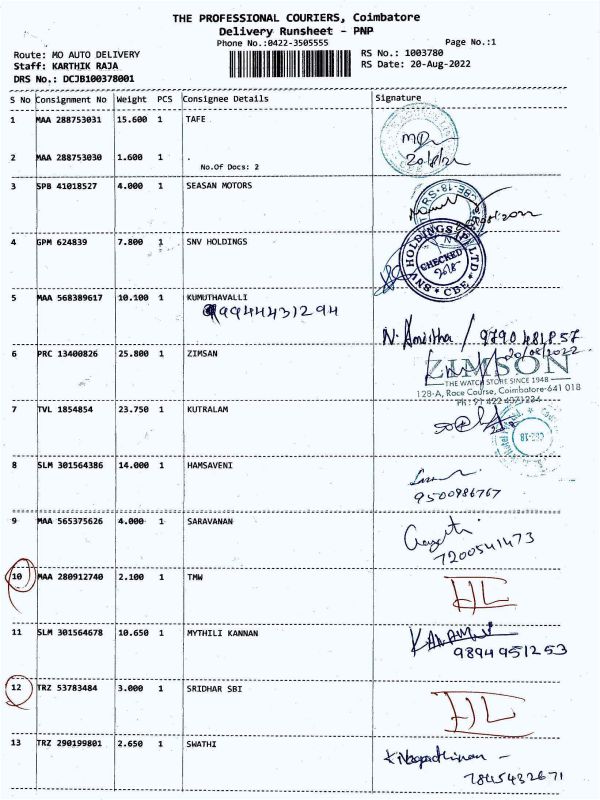 THE PROFESSIONAL COURIERS, Coimbatore
Delivery Runsheet - PNP
Phone No.:0422-3505555
Page No.:1
Route: MO AUTO DELIVERY
RS No.: 1003780
Staff: KARTHIK RAJA
RS Date: 20-Aug-2022
DRS No.: DCJB100378001
S No Consignment No Weight PCS Consignee Details Signature
1 MAA 288753031 15.600 1 TAFE
2 MAA 288753030 1.600 1 .
20/8/22
No.Of Docs: 2
3 SPB 41018527 4.000 1 SEASAN MOTORS
4 GPM 624839 7.800 1 SNV HOLDINGS
SNV HOLDINGS (P) LTD
CHECKED
* CBE *
5 MAA 568389617 10.100 1 KUMUTHAVALLI
9944431294
N. Amritha / 9790481857
20/08/2022
6 PRC 13400826 25.800 1 ZIMSAN
ZIMSON
THE WATCH STORE SINCE 1948
128-A, Race Course, Coimbatore-641 018
Ph: 91 422 4071234
7 TVL 1854854 23.750 1 KUTRALAM
CBE-18
8 SLM 301564386 14.000 1 HAMSAVENI
9500986767
9 MAA 565375626 4.000 1 SARAVANAN
7200541473
10 MAA 280912740 2.100 1 TMW
11 SLM 301564678 10.650 1 MYTHILI KANNAN
9894951253
12 TRZ 53783484 3.000 1 SRIDHAR SBI
13 TRZ 290199801 2.650 1 SWATHI
7845432671